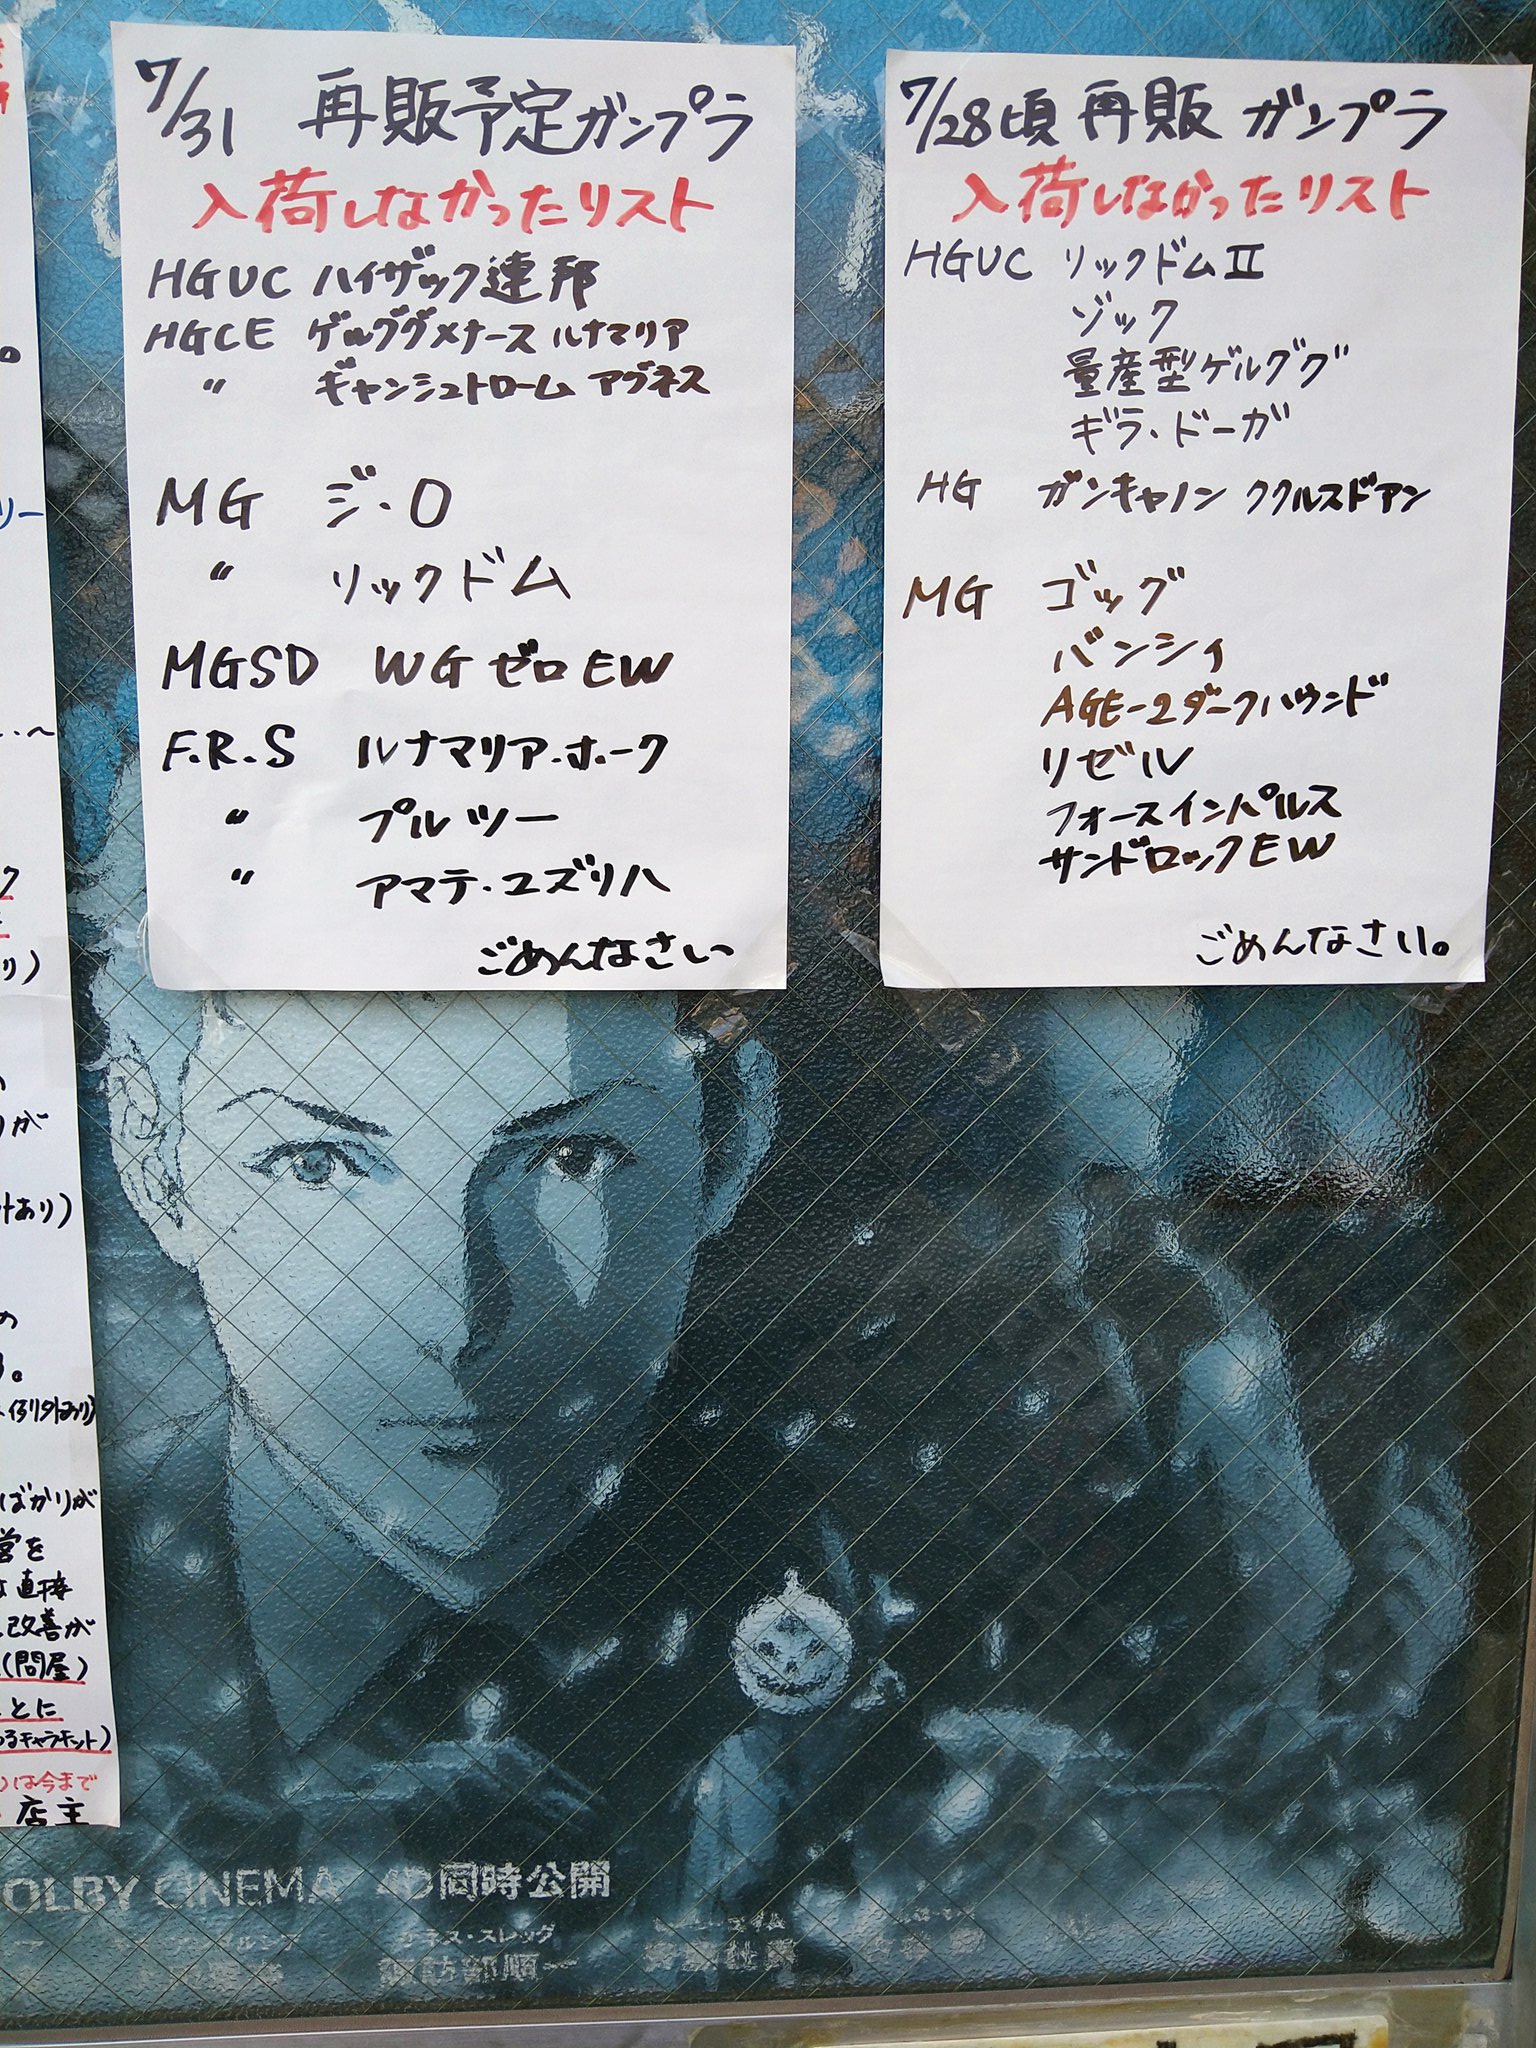 7/31 再販予定ガンプラ
入荷しなかったリスト
HGUC ハイザック連邦
HGCE ゲルググメナース ルナマリア
〃 ギャンシュトローム アグネス
MG ジ・O
〃 リックドム
MGSD WGゼロEW
F.R.S ルナマリア・ホーク
〃 プルツー
〃 アマテ・ユズリハ
ごめんなさい
7/28頃 再販 ガンプラ
入荷しなかったリスト
HGUC リックドムⅡ
ゾック
量産型ゲルググ
ギラ・ドーガ
HG ガンキャノン ククルスドアン
MG ゴッグ
バンシィ
AGE-2ダークハウンド
リゼル
フォースインパルス
サンドロックEW
ごめんなさい。
リー
り)
が
外あり)
の
例外あり)
ばかりが
営を
直接
改善が
(問屋)
とに
るキャラキット)
は今まで
店主
OLBY CINEMA 4D同時公開
ネス・スレッグ
諏訪部順一